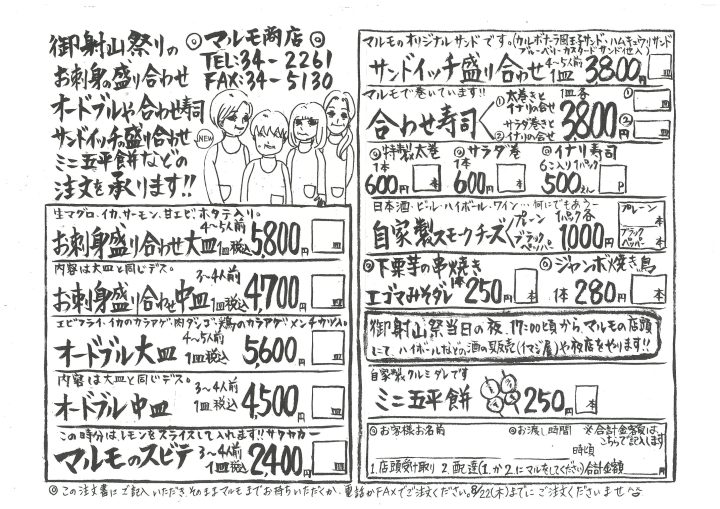 御射山祭りの
お刺身の盛り合わせ
オードブルや合わせ寿司
サンドイッチの盛り合わせ
ミニ五平餅などの
注文を承ります!!
◎マルモ商店◎
TEL:34-2261
FAX:34-5130
NEW
生マグロ、イカ、サーモン、甘エビ、ホタテ入り。
お刺身盛り合わせ大皿 4~5人前 1皿税込 5,800円 皿
内容は大皿と同じデス。
お刺身盛り合わせ中皿 3~4人前 1皿税込 4,700円 皿
エビフライ、イカのカラアゲ、肉ダンゴ、鶏のカラアゲ、メンチカツ入。
オードブル大皿 4~5人前 1皿税込 5,600円 皿
内容は大皿と同じデス。
オードブル中皿 3~4人前 1皿税込 4,500円 皿
この時分はレモンをスライスして入れます!!
マルモのスビテ 3~4人前 1皿税込 2,400円 皿
マルモのオリジナルサンドです。(カルボナーラ風玉子サンド・ハムキュウリサンド
ブルーベリーカスタードサンド仕入)
サンドイッチ盛り合わせ 4~5人前 1皿 3,800円 皿
マルモで巻いています!!
合わせ寿司 ①太巻きとイナリの合せ ②サラダ巻きとイナリの合せ 1皿各 3,800円 ① 皿 ② 皿
◎特製太巻 1本 600円 本
◎サラダ巻 1本 600円 本
◎イナリ寿司 6こ入り1パック 500えん P
日本酒・ビール・ハイボール・ワイン…何にでもあう~
自家製スモークチーズ プレーン ブラックペッパー 1パック各 1,000円 プレーン 本 ブラックペッパー 本
◎下栗芋の串焼き
エゴマみそダレ 1本 250円 本
◎ジャンボ焼き鳥
1本 280円 本
御射山祭当日の夜、17:00頃から、マルモの店頭
にて、ハイボールなどの酒の販売(イマジ屋)や夜店をやります!!
自家製クルミダレです
ミニ五平餅 250円 本
◎お客様お名前
◎お渡し時間 時頃
※合計金額はこちらで記入します
1.店頭受け取り 2.配達(1.か2.にマルをしてください) 合計金額 円
◎この注文書にご記入いただき、そのままマルモまでお持ちいただくか、電話かFAXでご注文ください。8/22(木)までにご注文くださいませ